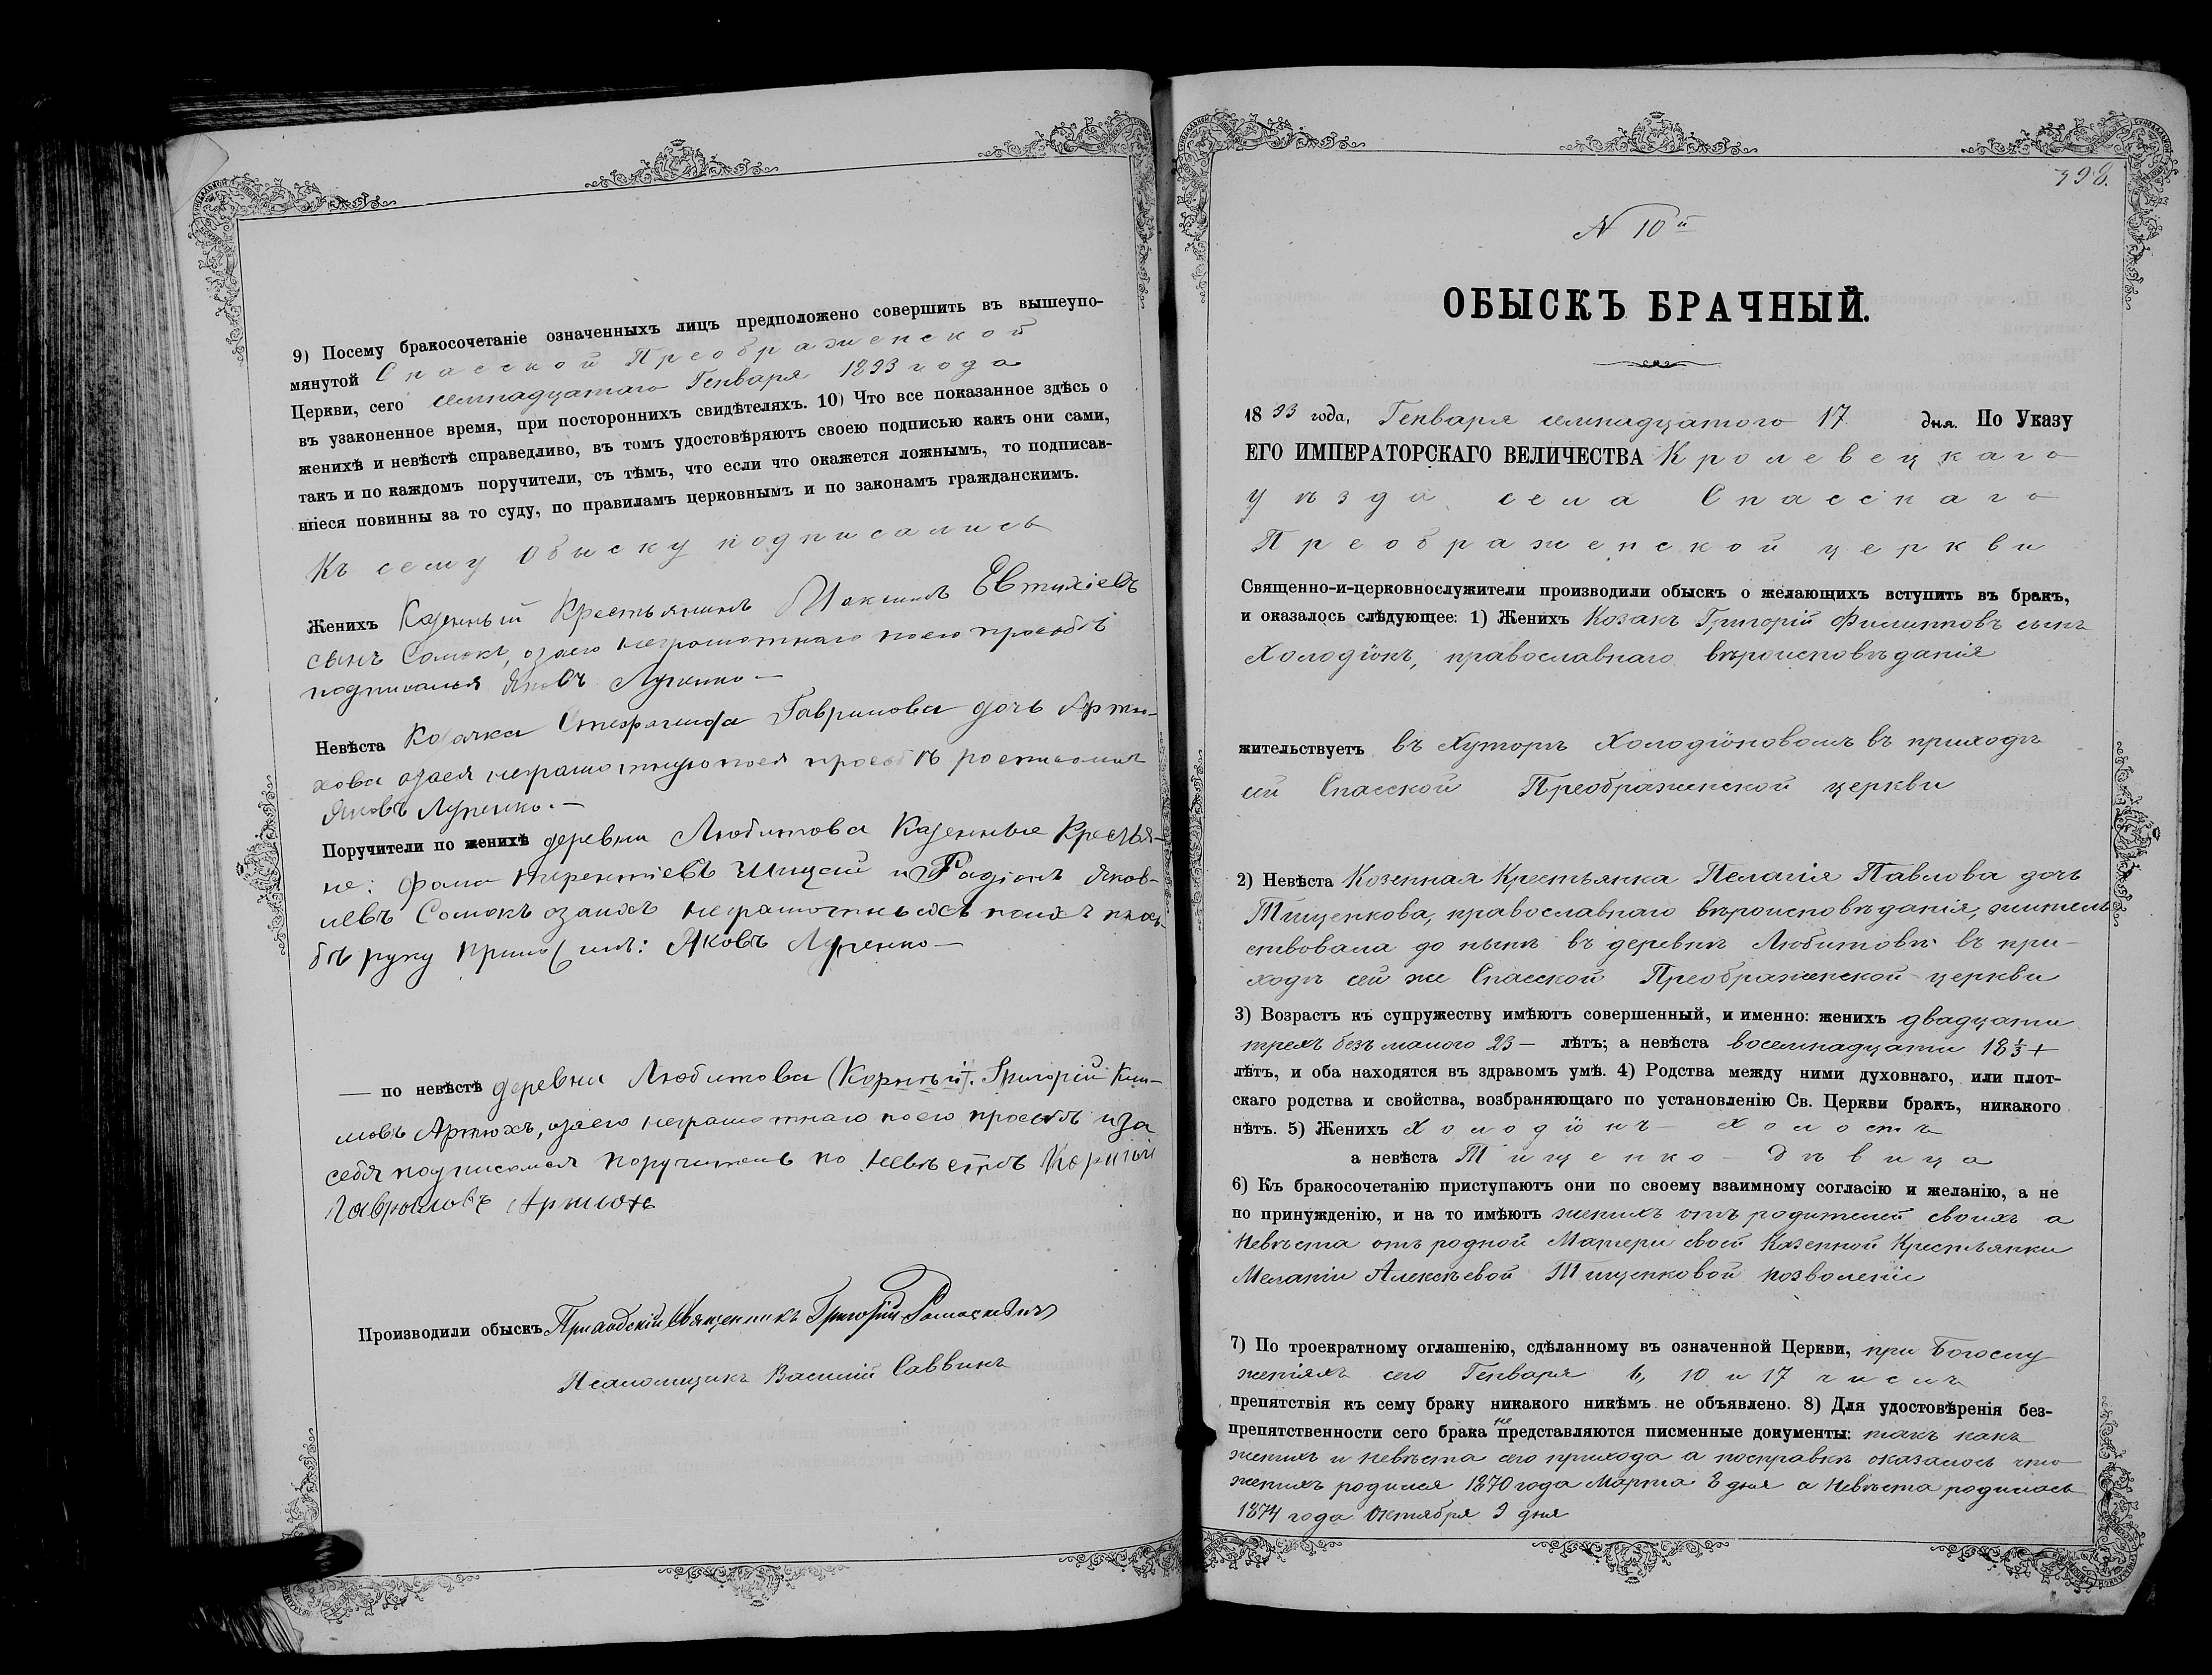 9) Посему бракосочетаніе означенныхъ лицъ предположено совершить въ вышеупо-
мянутой Спасской Преображенской
Церкви, сего семнадцатаго Генваря 1893 года
въ узаконенное время, при постороннихъ свидѣтеляхъ. 10) Что все показанное здѣсь о
женихѣ и невѣстѣ справедливо, въ томъ удостовѣряютъ своею подписью какъ они сами,
такъ и по каждомъ поручители, съ тѣмъ, что если что окажется ложнымъ, то подписав-
шіеся повинны за то суду, по правиламъ церковнымъ и по законамъ гражданскимъ.
Къ сему обыску подписались
Женихъ Казенный Крестьянинъ Максимъ Евтихіевъ
сынъ Сомокъ, азаего неграмотнаго поего просьбѣ
подписался Яковъ Луценко —
Невѣста Козачка Стефанида Гаврилова дочь Артю-
хова азаея неграмотную поея просьбѣ росписался
Яковъ Луценко. —
Поручители по женихѣ деревни Любитова Казенные Крестья-
не: Фома Терентіевъ и Радіонъ Яков-
левъ Сомокъ азаихъ неграмотныхъ поихъ прозь-
бѣ руку приложилъ: Яковъ Луценко —
— по невѣстѣ деревни Любитова (Корнѣй). Григорій Кли-
мовъ Артюхъ, азаего неграмотнаго поего просьбѣ иза
себя подписался поручитель по невѣстѣ Корнѣй
Гавриловъ Артюхъ
Производили обыскъ Приходскій Священникъ Григорій
Псаломщикъ Василій Саввинъ
398.
N 10й
ОБЫСКЪ БРАЧНЫЙ.
1893 года, Генваря семнадцатого 17 дня. По Указу
ЕГО ИМПЕРАТОРСКАГО ВЕЛИЧЕСТВА Кролевецкаго
уѣзда села Спасскаго
Преображенской церкви
Священно-и-церковнослужители производили обыскъ о желающихъ вступить въ бракъ,
и оказалось слѣдующее: 1) Женихъ Козакъ Григорій Филипповъ сынъ
Холодіонъ, православнаго вѣроисповѣданія
жительствуетъ въ Хуторѣ Холодіоновомъ въ приходѣ
сей Спасской Преображенской церкви
2) Невѣста Козенная Крестьянка Пелагія Павлова дочь
Тищенкова, православнаго вѣроисповѣданія, житель
ствовала до нынѣ въ деревнѣ Любитовѣ въ при-
ходѣ сей же Спасской Преображенской церкви
3) Возрастъ къ супружеству имѣютъ совершенный, и именно: женихъ двадцати
трехъ безъ малого 23 — лѣтъ; а невѣста восемнадцати 18 ⅓ +
лѣтъ, и оба находятся въ здравомъ умѣ. 4) Родства между ними духовнаго, или плот-
скаго родства и свойства, возбраняющаго по установленію Св. Церкви бракъ, никакого
нѣтъ. 5) Женихъ Холодіонъ — Холостъ
а невѣста Тищенко — Дѣвица
6) Къ бракосочетанію приступаютъ они по своему взаимному согласію и желанію, а не
по принужденію, и на то имѣютъ женихъ отъ родителей своихъ а
Невѣста отъ родной Матери своей Казенной Крестьянки
Меланіи Алексѣевой Тищенковой позволеніе
7) По троекратному оглашенію, сдѣланному въ означенной Церкви, при Богослу
женіяхъ сего Генваря 6, 10 и 17 числъ
препятствія къ сему браку никакого никѣмъ не объявлено. 8) Для удостовѣренія без-
препятственности сего брака не представляются писменные документы: такъ какъ
женихъ и невѣста сего прихода а посправкѣ оказалось что
женихъ родился 1870 года Марта 8 дня а Невѣста родилась
1874 года Октября 9 дня